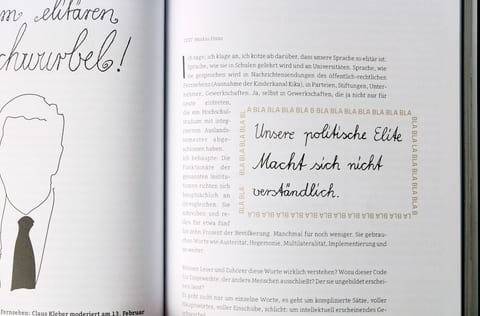 m elitären
chwurbel!
Fernsehen: Claus Kleber moderiert am 13. Februar
TEXT
ich sage, ich klage an, ich kotze ab darüber, dass unsere Sprache so elitär ist.
Sprache, wie sie in Schulen gelehrt wird und an Universitäten. Sprache, wie
sie gesprochen wird in Nachrichtensendungen des öffentlich-rechtlichen
Fernsehens (Ausnahme der Kinderkanal Kika), in Parteien, Stiftungen, Unter-
nehmen, Gewerkschaften. Ja, selbst in Gewerkschaften, die ja nicht nur für
Leute eintreten,
die ein Hochschul-
studium mit inte-
griertem Auslands-
semester abge-
schlossen haben.
Ich behaupte: Die
Funktionäre der
genannten Institu-
tionen richten sich
hauptsächlich an
ihresgleichen. Sie
schreiben und re-
den für etwa fünf
bis zehn Prozent der Bevölkerung. Manchmal für noch weniger. Sie gebrau-
chen Worte wie Austerität, Hegemonie, Multilateralität, Implementierung und
so weiter.
BLA BLA BLA BLA BLA BLA BLA BLA
Unsere politische Elite
Macht sich nicht
verständlich.
BLA BLA BLA BLA BLA BLA BLA BLA
Leser und Zuhörer diese Worte wirklich verstehen? Wozu dieser Code
für Eingeweihte, der andere Menschen ausschließt? Der sie ungebildet erschei-
nen lässt?
Es geht nicht nur um einzelne Worte, es geht um komplizierte Sätze, voller
voller Einschübe, schlicht: um intellektuell erscheinendes Ge-